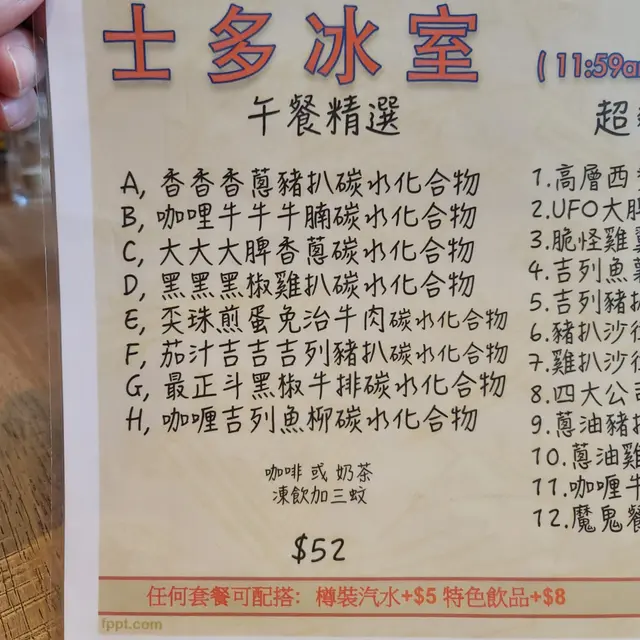 士多冰室
(11:59a
午餐精選
超
A, 香香香蔥豬扒碳水化合物
B, 咖哩牛牛牛腩碳水化合物
C, 大大大脾香蔥碳水化合物
D, 黑黑黑椒雞扒碳水化合物
E, 奀珠煎蛋免治牛肉碳水化合物
F, 茄汁吉吉吉列豬扒碳水化合物
G, 最正斗黑椒牛排碳水化合物
H, 咖喱吉列魚柳碳水化合物
咖啡 或 奶茶
凍飲加三蚊
$52
1.高層西
2.UFO大脾
3.脆怪雞
4.吉列魚
5.吉列豬
6.豬扒沙
7.雞扒沙
8.四大公
9.蔥油豬
10.蔥油雞
11.咖喱牛
12.魔鬼餐
任何套餐可配搭: 樽裝汽水+$5 特色飲品+$8
fppt.com